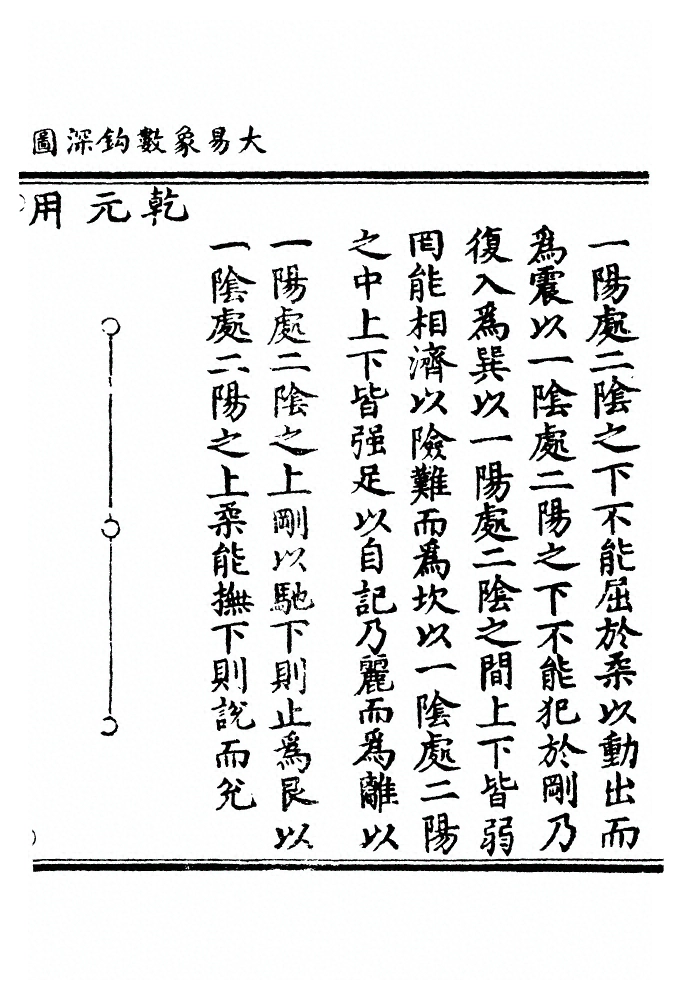 大易象數鈎深圖
一陽處二陰之下不能屈於柔以動出而
為震以一陰處二陽之下不能犯於剛乃
復入為巽以一陽處二陰之間上下皆弱
罔能相濟以險難而為坎以一陰處二陽
之中上下皆强足以自記乃麗而為離以
一陽處二陰之上剛以馳下則止為艮以
一陰處二陽之上柔能撫下則說而兊
乾元用